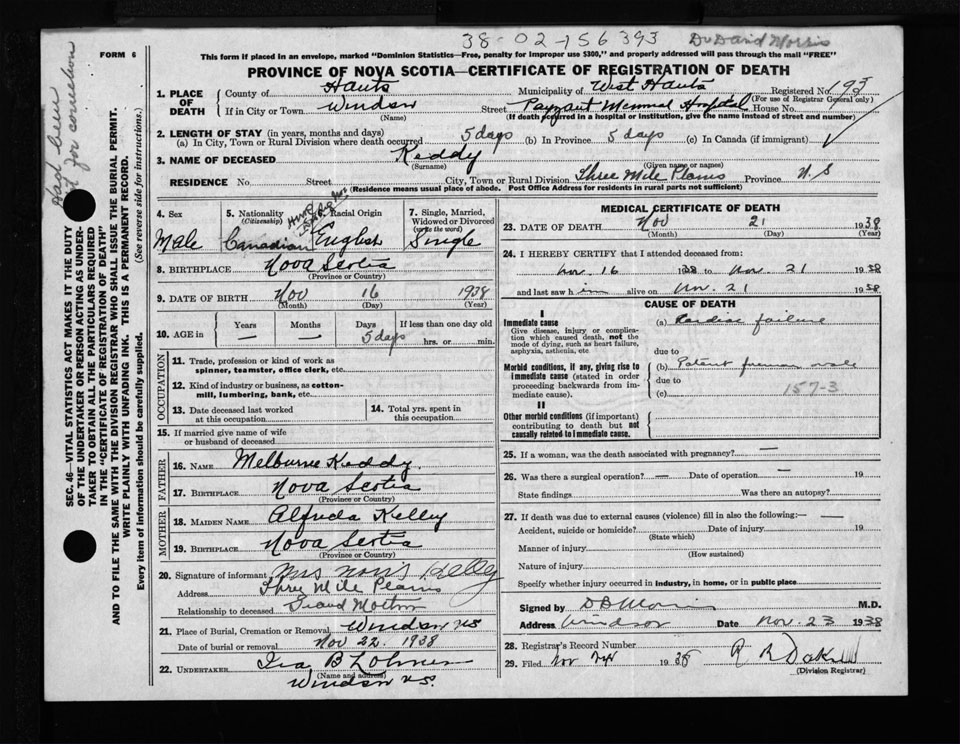 38-02-156393 Dr David Morris
FORM 6
This form if placed in an envelope, marked "Dominion Statistics—Free, penalty for improper use $300," and properly addressed will pass through the mail "FREE"
PROVINCE OF NOVA SCOTIA—CERTIFICATE OF REGISTRATION OF DEATH
1. PLACE OF DEATH County of Hants Municipality of West Hants Registered No. 193
(For use of Registrar General only)
If in City or Town Windsor Street Payzant Memorial Hospital House No.
(Name) (If death occurred in a hospital or institution, give the name instead of street and number)
2. LENGTH OF STAY (in years, months and days)
(a) In City, Town or Rural Division where death occurred 5 days (b) In Province 5 days (c) In Canada (if immigrant)
3. NAME OF DECEASED Keddy
(Surname) (Given name or names)
RESIDENCE No. Street City, Town or Rural Division Three Mile Plains Province N.S
(Residence means usual place of abode. Post Office Address for residents in rural parts not sufficient)
4. Sex Male
5. Nationality (Citizenship) Canadian
6. Racial Origin English
7. Single, Married, Widowed or Divorced (write the word) Single
8. BIRTHPLACE Nova Scotia
(Province or Country)
9. DATE OF BIRTH Nov 16 1938
(Month) (Day) (Year)
10. AGE in Years — Months — Days 5 days If less than one day old hrs. or min.
OCCUPATION
11. Trade, profession or kind of work as spinner, teamster, office clerk, etc.
12. Kind of industry or business, as cotton-mill, lumbering, bank, etc.
13. Date deceased last worked at this occupation
14. Total yrs. spent in this occupation
15. If married give name of wife or husband of deceased
FATHER
16. NAME Melburne Keddy
17. BIRTHPLACE Nova Scotia
(Province or Country)
MOTHER
18. MAIDEN NAME Alfreda Kelley
19. BIRTHPLACE Nova Scotia
(Province or Country)
20. Signature of informant Mrs Norris Kelley
Address Three Mile Plains
Relationship to deceased Grand Mother
21. Place of Burial, Cremation or Removal Windsor NS
Date of burial or removal Nov 22 1938
22. UNDERTAKER Ira B
(Name and address)
Windsor N.S.
MEDICAL CERTIFICATE OF DEATH
23. DATE OF DEATH Nov 21 1938
(Month) (Day) (Year)
24. I HEREBY CERTIFY that I attended deceased from:
Nov. 16 1938 to Nov. 21 1938
and last saw him alive on Nov. 21 1938
CAUSE OF DEATH
I
Immediate cause
Give disease, injury or complication which caused death, not the mode of dying, such as heart failure, asphyxia, asthenia, etc
(a) Cardiac failure
due to
Morbid conditions, if any, giving rise to immediate cause (stated in order proceeding backwards from immediate cause).
(b) Patent foramen ovale
due to
(c) 157-3
II
Other morbid conditions (if important) contributing to death but not causally related to immediate cause.
25. If a woman, was the death associated with pregnancy? —
26. Was there a surgical operation? — Date of operation — 19
State findings Was there an autopsy?
27. If death was due to external causes (violence) fill in also the following:—
Accident, suicide or homicide? Date of injury 19
(State which)
Manner of injury
(How sustained)
Nature of injury
Specify whether injury occurred in industry, in home, or in public place
Signed by D B Morris M.D.
Address Windsor Date Nov. 23 1938
28. Registrar's Record Number
29. Filed Nov 1938
(Division Registrar)
SEC. 46—VITAL STATISTICS ACT MAKES IT THE DUTY OF THE UNDERTAKER OR PERSON ACTING AS UNDERTAKER TO OBTAIN ALL THE PARTICULARS REQUIRED IN THE "CERTIFICATE OF REGISTRATION OF DEATH" AND TO FILE THE SAME WITH THE DIVISION REGISTRAR WHO SHALL ISSUE THE BURIAL PERMIT.
WRITE PLAINLY WITH UNFADING INK. THIS IS A PERMANENT RECORD.
Every item of information should be carefully supplied. (See reverse side for instructions.)
for correction